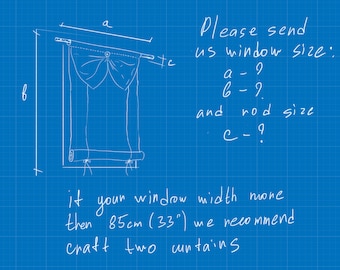 a
Please send
us window size:
a - ?
b - ?
and rod size
c - ?
c
b
if your window width more
then 85cm (33") we recommend
craft two curtains